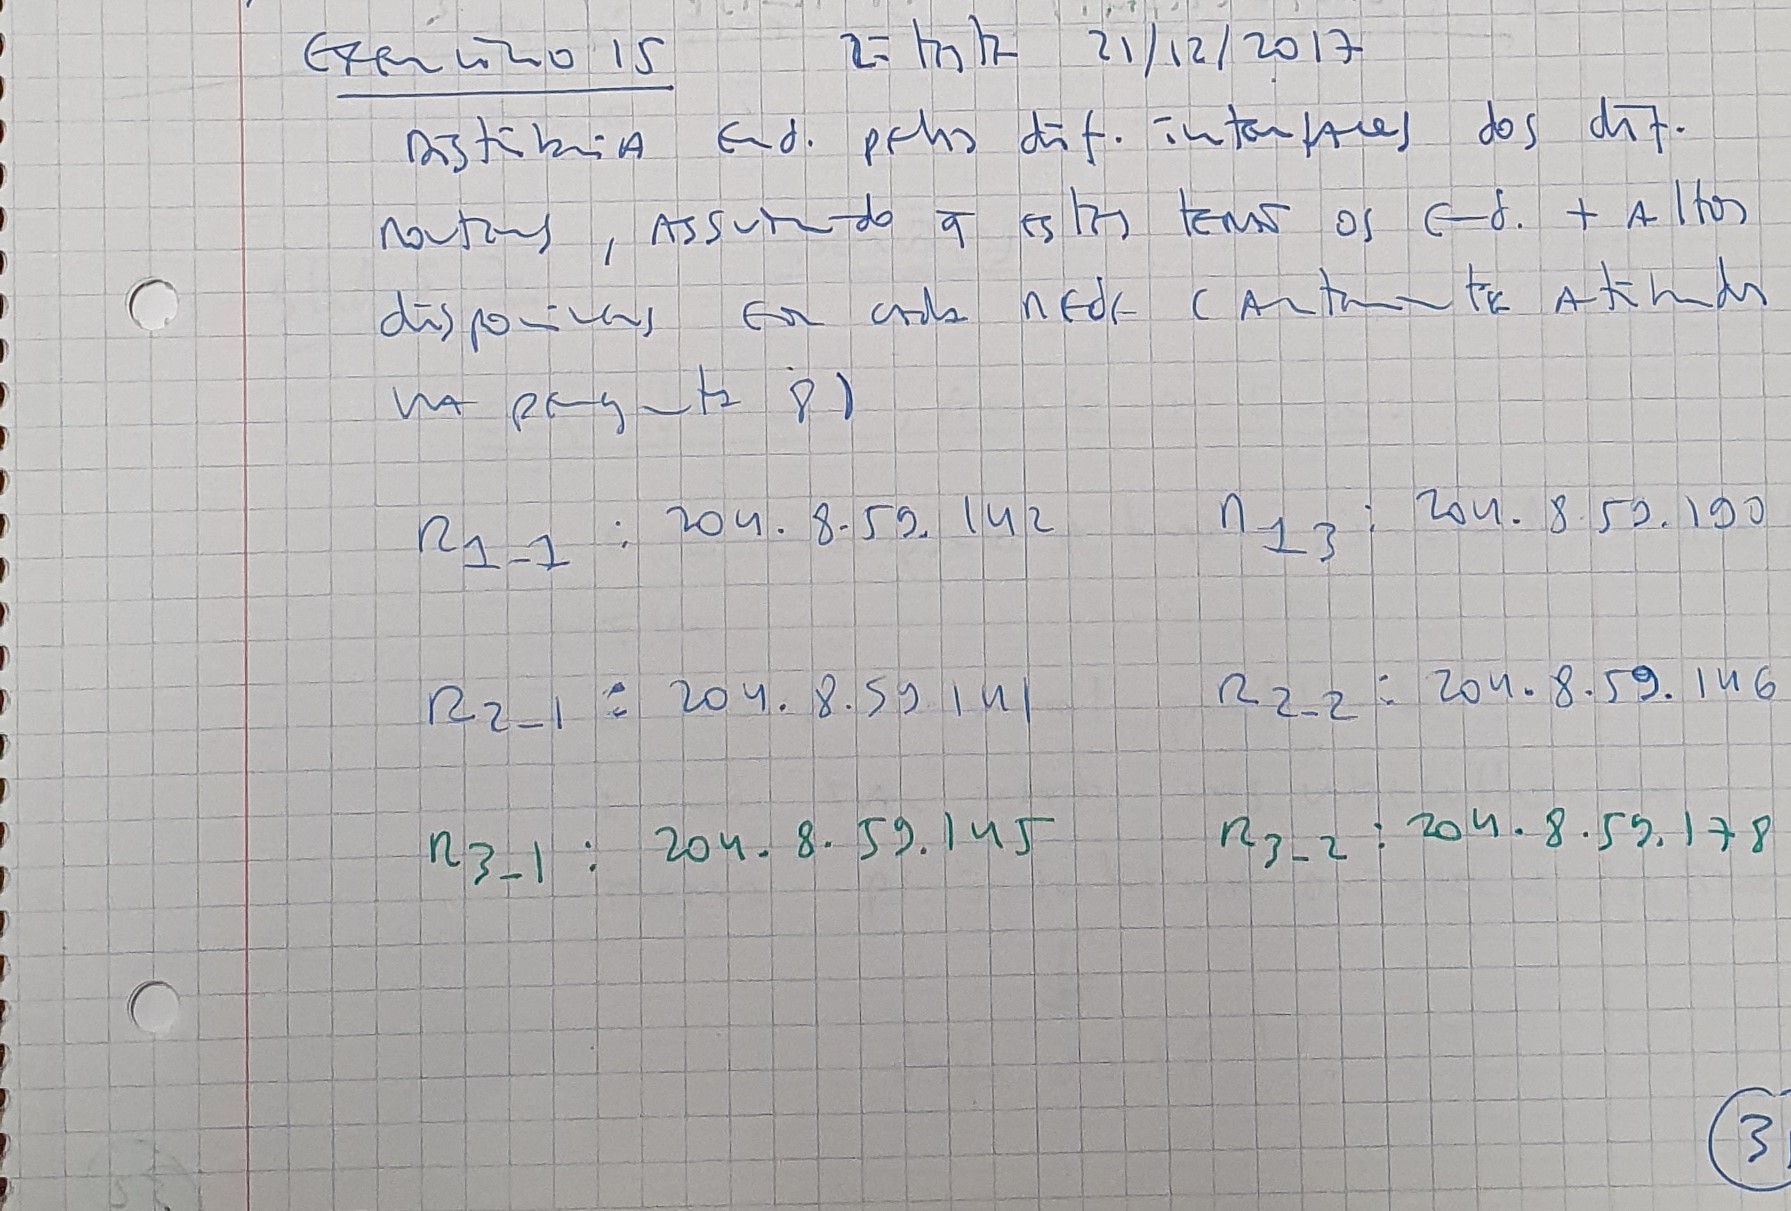 Exercício 15 2ª ficha 21/12/2017
Distribuia end. pelas dif. interfaces dos dif.
routers, assumindo q estas terão os end. + altos
disponíveis em cada rede (anteriormente atribuídos
na pergunta 8)
R1_1 : 204.8.59.142 R1 3 : 204.8.59.190
R2_1 : 204.8.59 141 R2_2 : 204.8.59.146
R3_1 : 204.8.59.145 R3_2 : 204.8.59.178
3